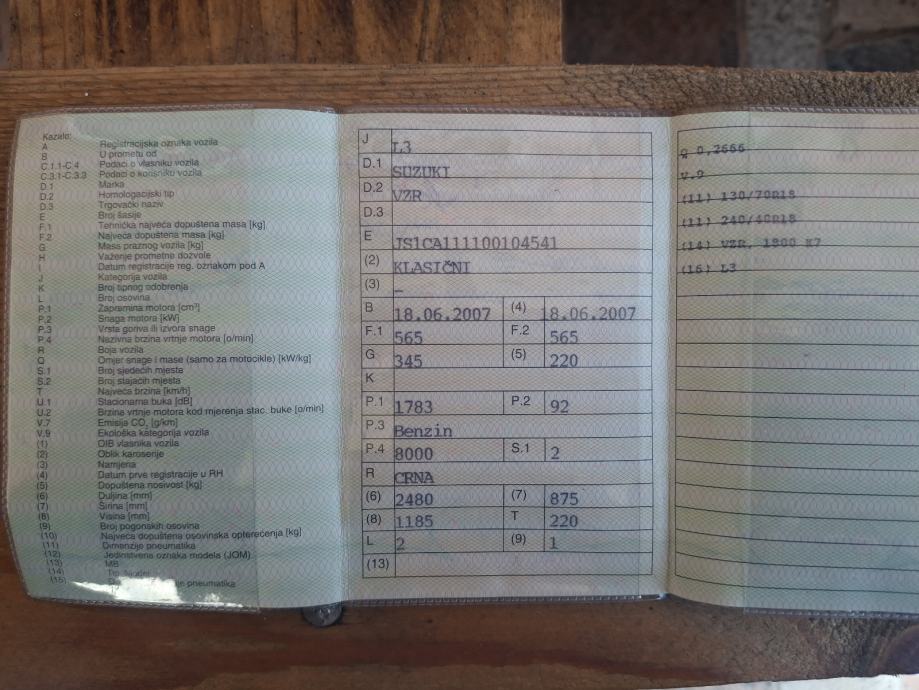 Kazalo:
A Registracijska oznaka vozila
B U prometu od
C.1.1-C.4 Podaci o vlasniku vozila
C.3.1-C.3.3 Podaci o korisniku vozila
D.1 Marka
D.2 Homologacijski tip
D.3 Trgovački naziv
E Broj šasije
F.1 Tehnička najveća dopuštena masa [kg]
F.2 Najveća dopuštena masa [kg]
G Masa praznog vozila [kg]
H Važenje prometne dozvole
I Datum registracije reg. oznakom pod A
J Kategorija vozila
K Broj tipnog odobrenja
L Broj osovina
P.1 Zapremina motora [cm³]
P.2 Snaga motora [kW]
P.3 Vrsta goriva ili izvora snage
P.4 Nazivna brzina vrtnje motora [o/min]
R Boja vozila
Q Omjer snage i mase (samo za motocikle) [kW/kg]
S.1 Broj sjedećih mjesta
S.2 Broj stajaćih mjesta
T Najveća brzina [km/h]
U.1 Stacionarna buka [dB]
U.2 Brzina vrtnje motora kod mjerenja stac. buke [o/min]
V.7 Emisija CO₂ [g/km]
V.9 Ekološka kategorija vozila
(1) OIB vlasnika vozila
(2) Oblik karoserije
(3) Namjena
(4) Datum prve registracije u RH
(5) Dopuštena nosivost [kg]
(6) Duljina [mm]
(7) Širina [mm]
(8) Visina [mm]
(9) Broj pogonskih osovina
(10) Najveća dopuštena osovinska opterećenja [kg]
(11) Dimenzije pneumatika
(12) Jedinstvena oznaka modela (JOM)
(13) MB
(14)
(15) pneumatika
J L3
D.1 SUZUKI
D.2 VZR
D.3
E JS1CA111100104541
(2) KLASIČNI
(3) –
B 18.06.2007 (4) 18.06.2007
F.1 565 F.2 565
G 345 (5) 220
K
P.1 1783 P.2 92
P.3 Benzin
P.4 8000 S.1 2
R CRNA
(6) 2480 (7) 875
(8) 1185 T 220
L 2 (9) 1
(13)
Q 0,2666
V.9
(11) 130/70R18
(11) 240/40R18
(14) VZR, 1800 K7
(16) L3